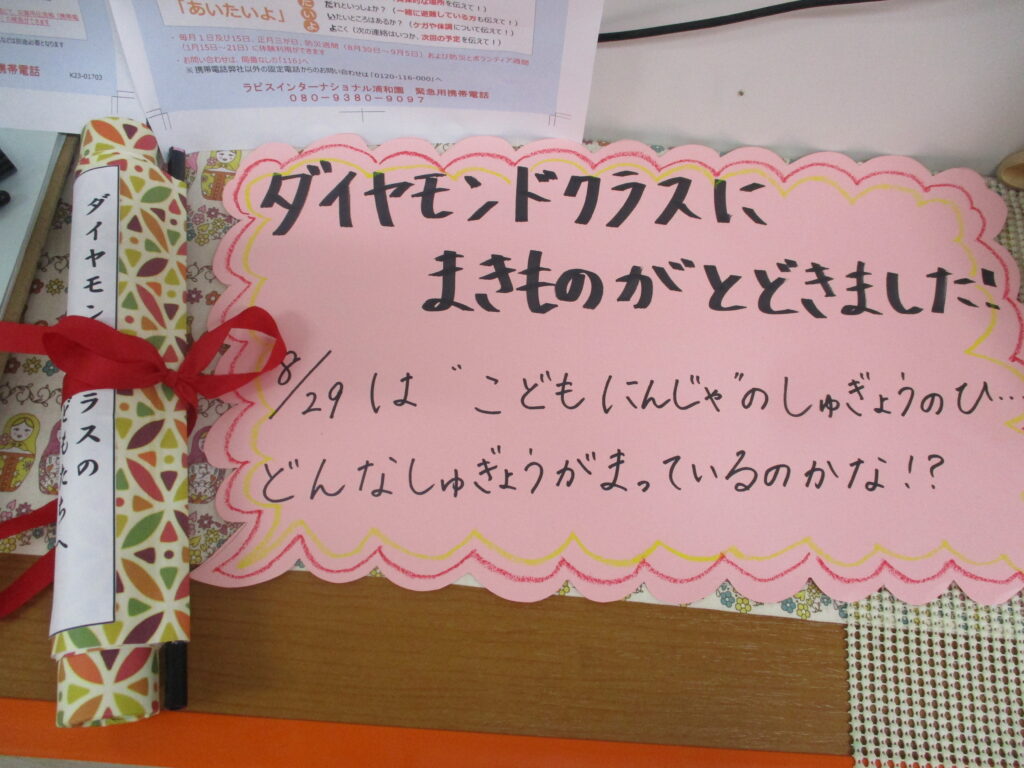 携帯電話
K23-01703
「あいたいよ」
だれといっしょか？（一緒に避難している方も伝えて！）
いたいところはあるか？（ケガや体調についても伝えて！）
よこく（次の連絡はいつか、次回の予定を伝えて！）
毎月１日及び15日、正月三が日、防災週間（8月30日～9月5日）および防災とボランティア週間
（1月15日～21日）に体験利用ができます
・お問い合わせは、局番なしの「116」へ
※ 携帯電話弊社以外の固定電話からのお問い合わせは「0120-116-000」へ
ラピスインターナショナル浦和園　緊急用携帯電話
０８０－９３８０－９０９７
ダイヤモンドクラスに
まきものがとどきました!
8/29 は "こどもにんじゃ"のしゅぎょうのひ…
どんなしゅぎょうがまっているのかな!?
ダイヤモン
ラスの
もたちへ